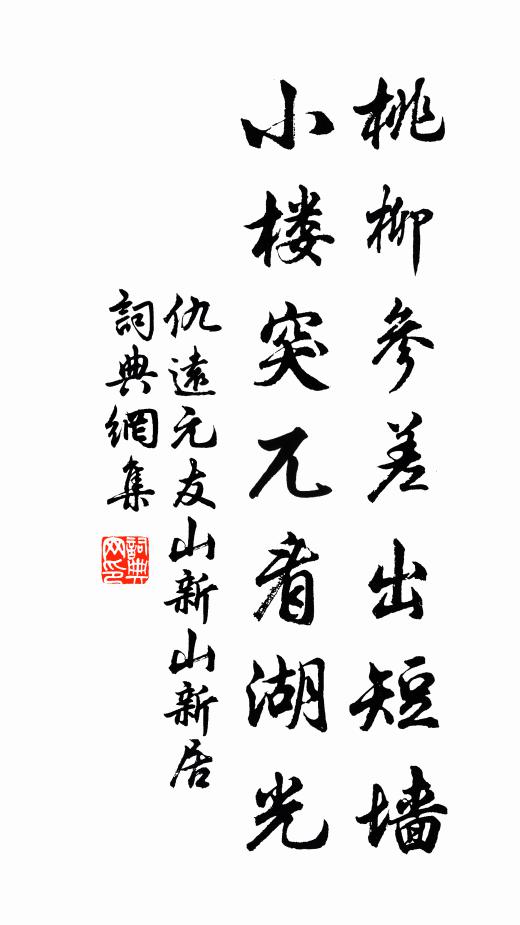 桃柳參差出短墙
小楼突兀看湖光
仇遠元友山新山新居
詞典網集
詞典網印